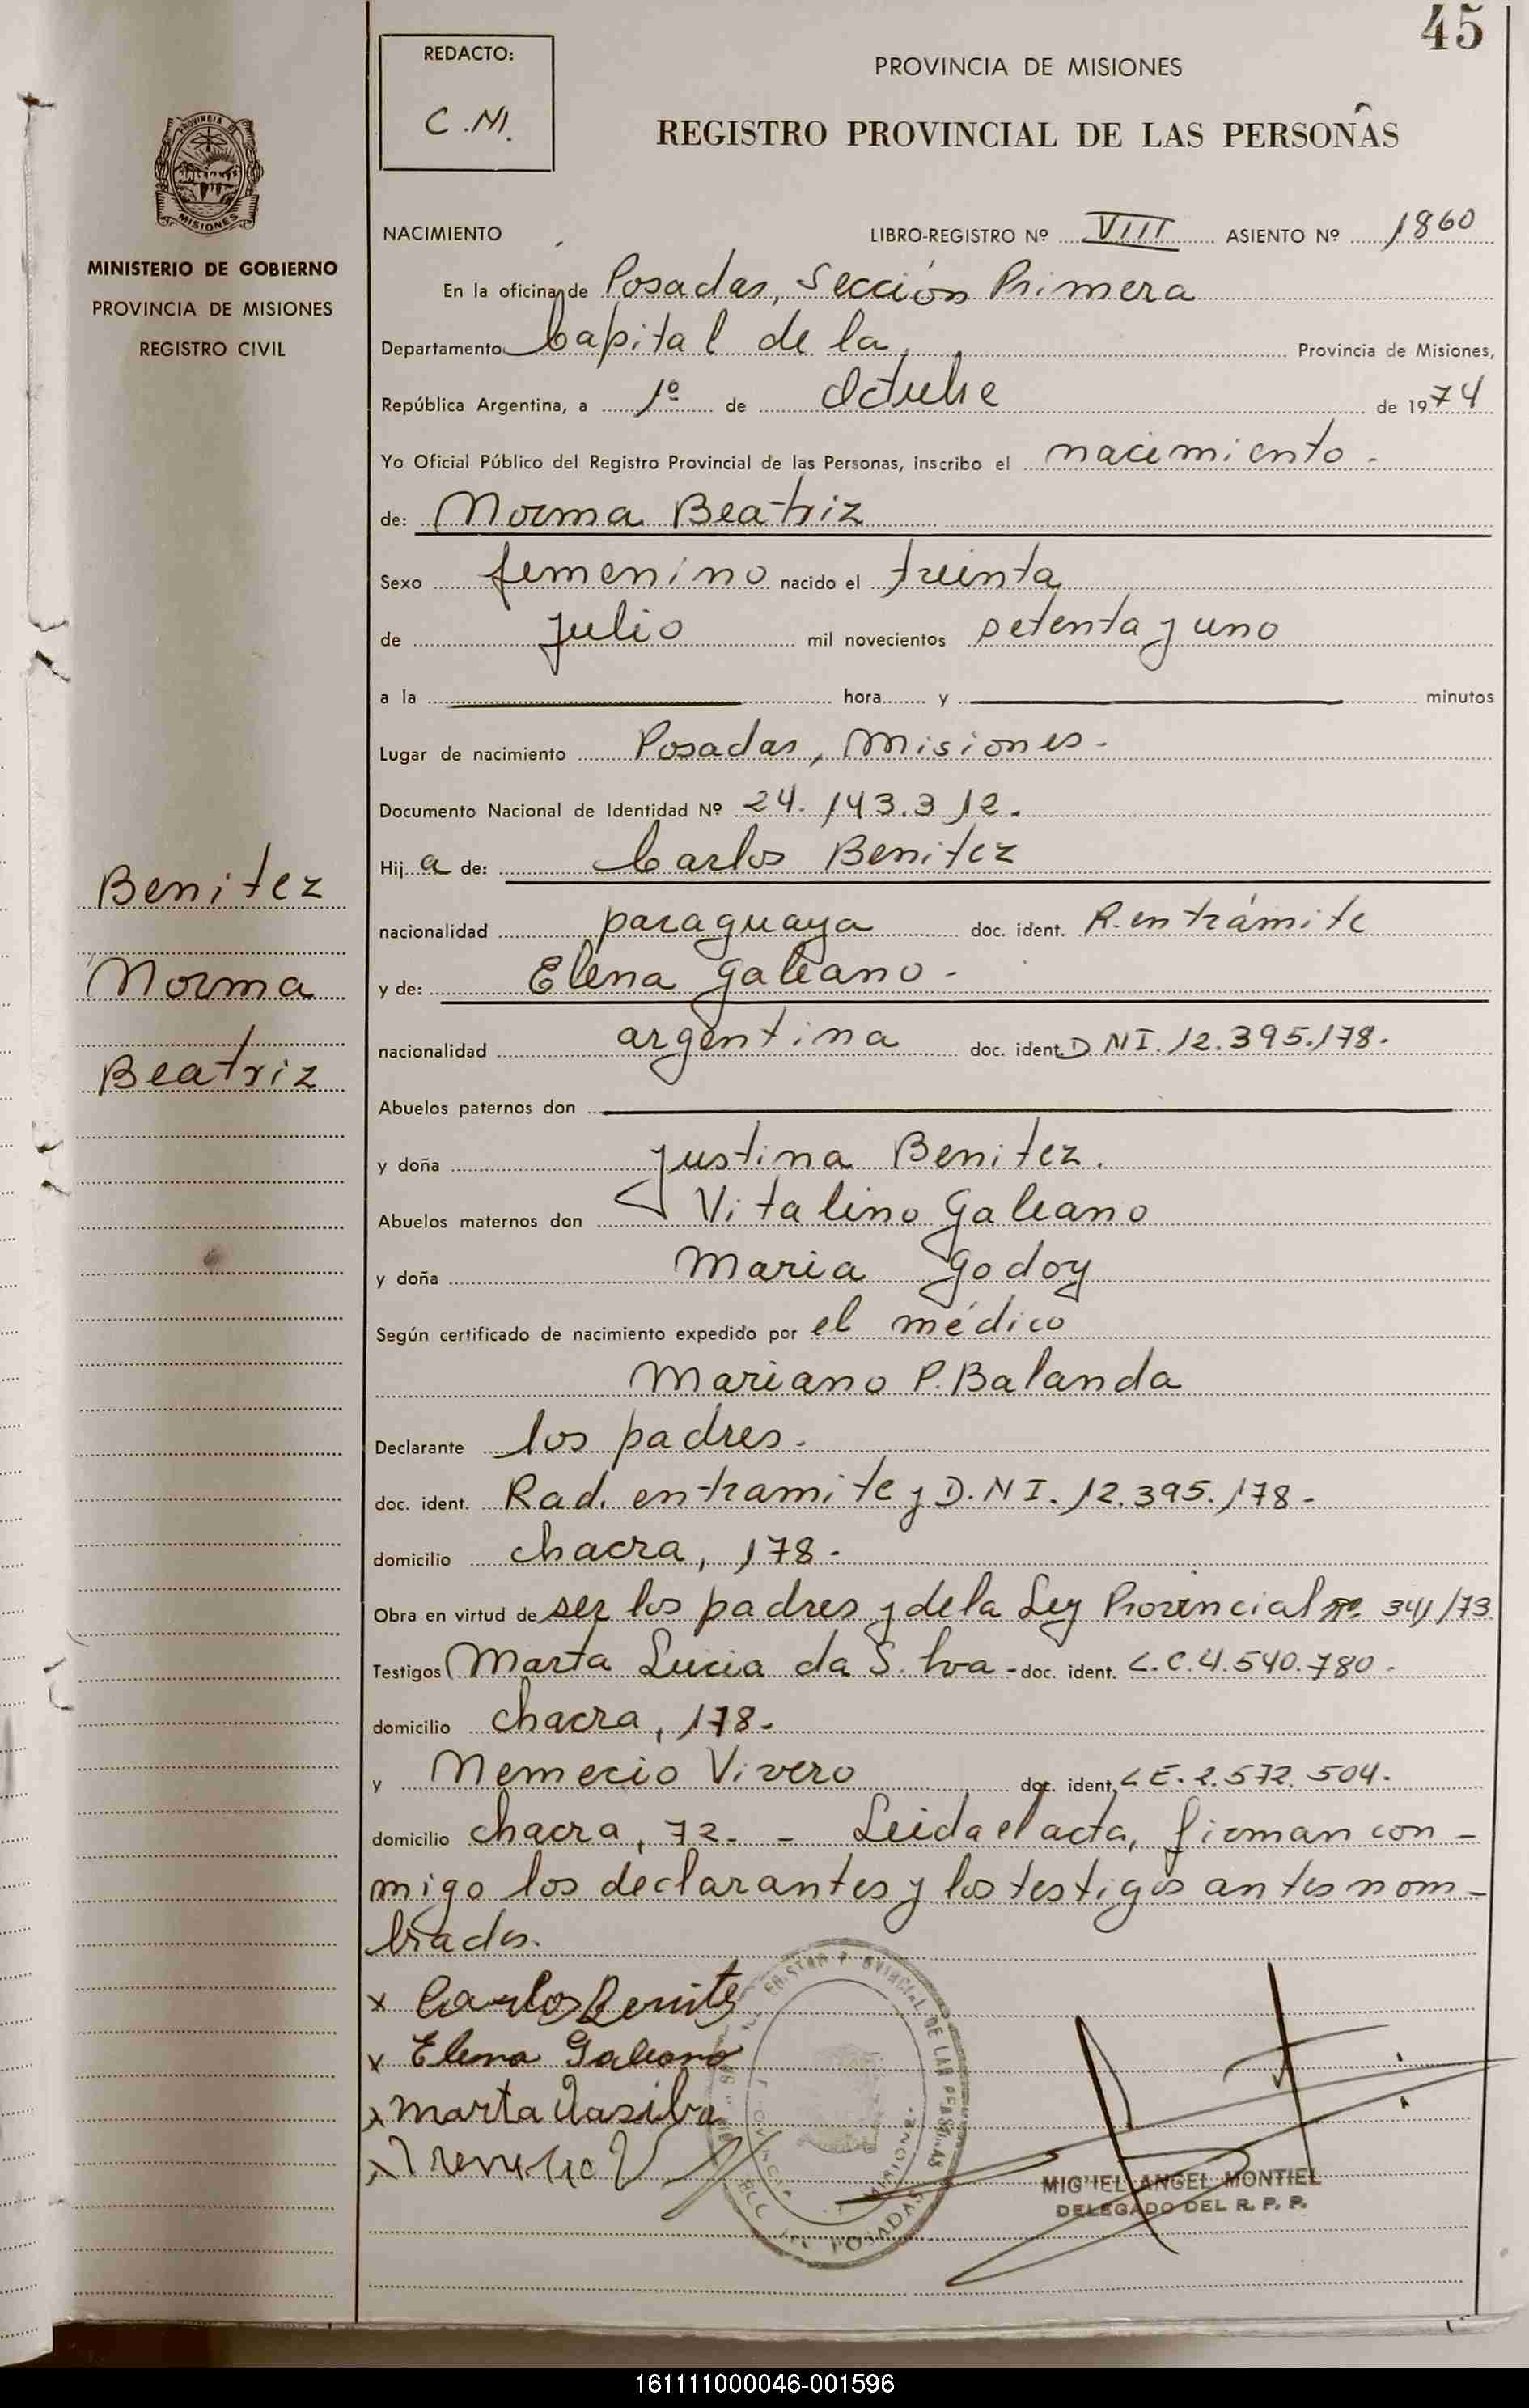 45
REDACTO:
C.M.
PROVINCIA DE MISIONES
REGISTRO PROVINCIAL DE LAS PERSONAS
PROVINCIA DE
MISIONES
MINISTERIO DE GOBIERNO
PROVINCIA DE MISIONES
REGISTRO CIVIL
NACIMIENTO LIBRO-REGISTRO Nº VIII ASIENTO Nº 1860
En la oficina de Posadas, Sección Primera
Departamento Capital de la, Provincia de Misiones,
República Argentina, a 1º de Octubre de 1974
Yo Oficial Público del Registro Provincial de las Personas, inscribo el nacimiento.-
de: Norma Beatriz
Sexo femenino nacido el treinta
de julio mil novecientos setenta y uno
a la hora y minutos
Lugar de nacimiento Posadas, Misiones.-
Documento Nacional de Identidad Nº 24.143.312.
Hij a de: Carlos Benitez
nacionalidad paraguaya doc. ident. R. en trámite
y de: Elena Galeano.-
nacionalidad argentina doc. ident. D NI. 12.395.178.
Abuelos paternos don
y doña Justina Benitez.
Abuelos maternos don Vitalino Galeano
y doña Maria Godoy
Según certificado de nacimiento expedido por el médico
Mariano P. Balanda
Declarante los padres.
doc. ident. Rad. en tramite y D.NI. 12.395.178.-
domicilio chacra, 178.-
Obra en virtud de ser los padres y de la Ley Provincial Nº 341/73
Testigos Marta Lucia da Silva - doc. ident. L.C.4.540.780.-
domicilio chacra, 178.-
y Nemecio Vivero doc. ident. L E. 2.572.504.
domicilio chacra, 72. - Leida el acta, firman con-
migo los declarantes y los testigos antes nom-
brados.
Benitez
Norma
Beatriz
x Carlos Benites
x Elena Galeano
x Marta dasilva
MIGUEL ANGEL MONTIEL
DELEGADO DEL R. P. P.
161111000046-001596